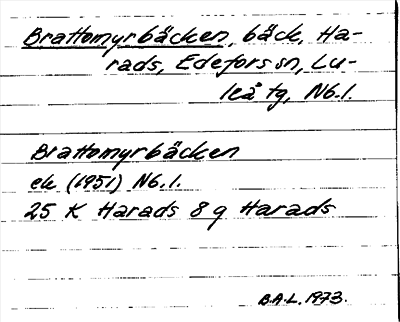 Brattomyrbäcken, bäck, Ha-
rads, Edefors sn, Lu-
leå tg, Nb.l.
Brattomyrbäcken
ek (1951) Nb.l.
25 K Harads 8 g Harads
B.A.L. 1973.